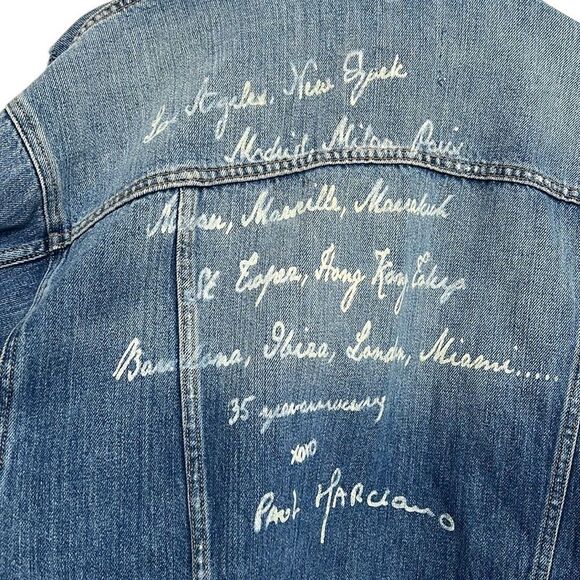 Los Angeles, New York
Madrid, Milan, Paris
Marseille, Marrakech
St Tropez, Hong Kong Tokyo
Barcelona, Ibiza, London, Miami.....
35 year anniversary
xoxo
Paul Marciano